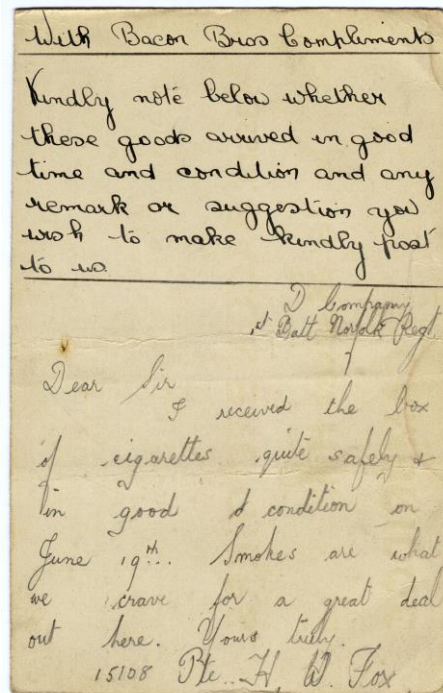 With Bacon Bros Compliments
Kindly note below whether
these goods arrived in good
time and condition and any
remark or suggestion you
wish to make kindly post
to us.
D Company
1st Batt Norfolk Regt
Dear Sir
I received the box
of cigarettes quite safely &
in good & condition on
June 19th. Smokes are what
we crave for a great deal
out here. Yours truly.
15108 Pte. H. W. Fox